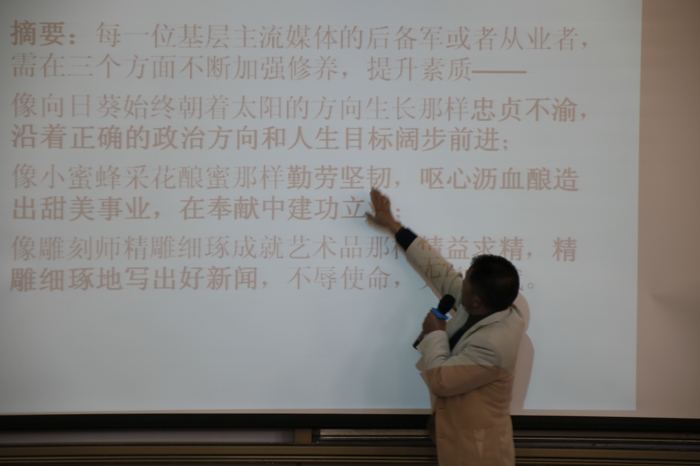 摘要：每一位基层主流媒体的后备军或者从业者，
需在三个方面不断加强修养，提升素质——
像向日葵始终朝着太阳的方向生长那样忠贞不渝，
沿着正确的政治方向和人生目标阔步前进；
像小蜜蜂采花酿蜜那样勤劳坚韧，呕心沥血酿造
出甜美事业，在奉献中建功立；
像雕刻师精雕细琢成就艺术品那样精益求精，精
雕细琢地写出好新闻，不辱使命，。